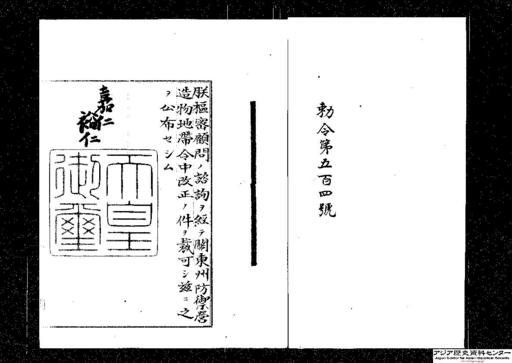 勅令第五百四號
朕樞密顧問ノ諮詢ヲ經テ關東州防禦營
造物地帶令中改正ノ件ヲ裁可シ茲ニ之
ヲ公布セシム
嘉仁
裕仁
天皇
御璽
アジア歴史資料センター
Japan Center for Asian Historical Records